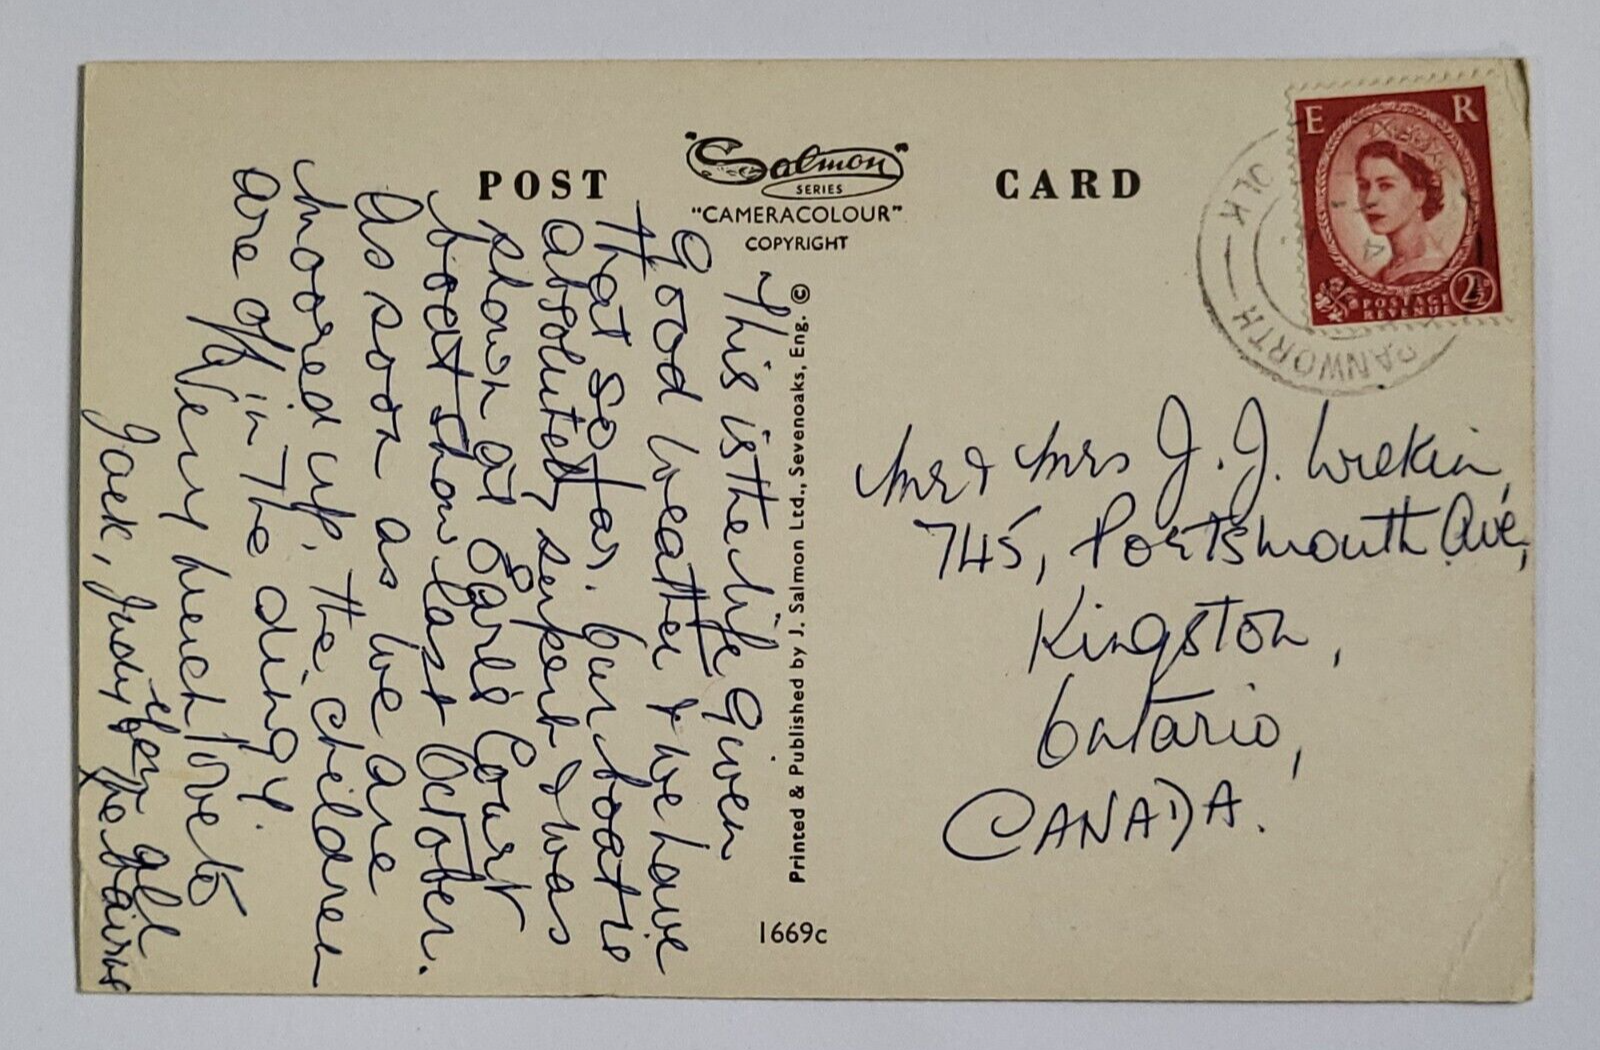 POST CARD
"Salmon"
SERIES
"CAMERACOLOUR"
COPYRIGHT
This is the life Given
Good weather & we have
that so far. Our boat is
absolutely superb & was
shown at Earls Court
boat show last October.
As soon as we are
moored up, the children
are off in the dingy.
Very much love to
you all
Jack, Judy & the bairns
Printed & Published by J. Salmon Ltd., Sevenoaks, Eng. ©
1669c
E R
POSTAGE
REVENUE
2½
RANWORTH
Mr & Mrs J. J. Wrekin,
745, Portsmouth Ave,
Kingston,
Ontario,
CANADA.